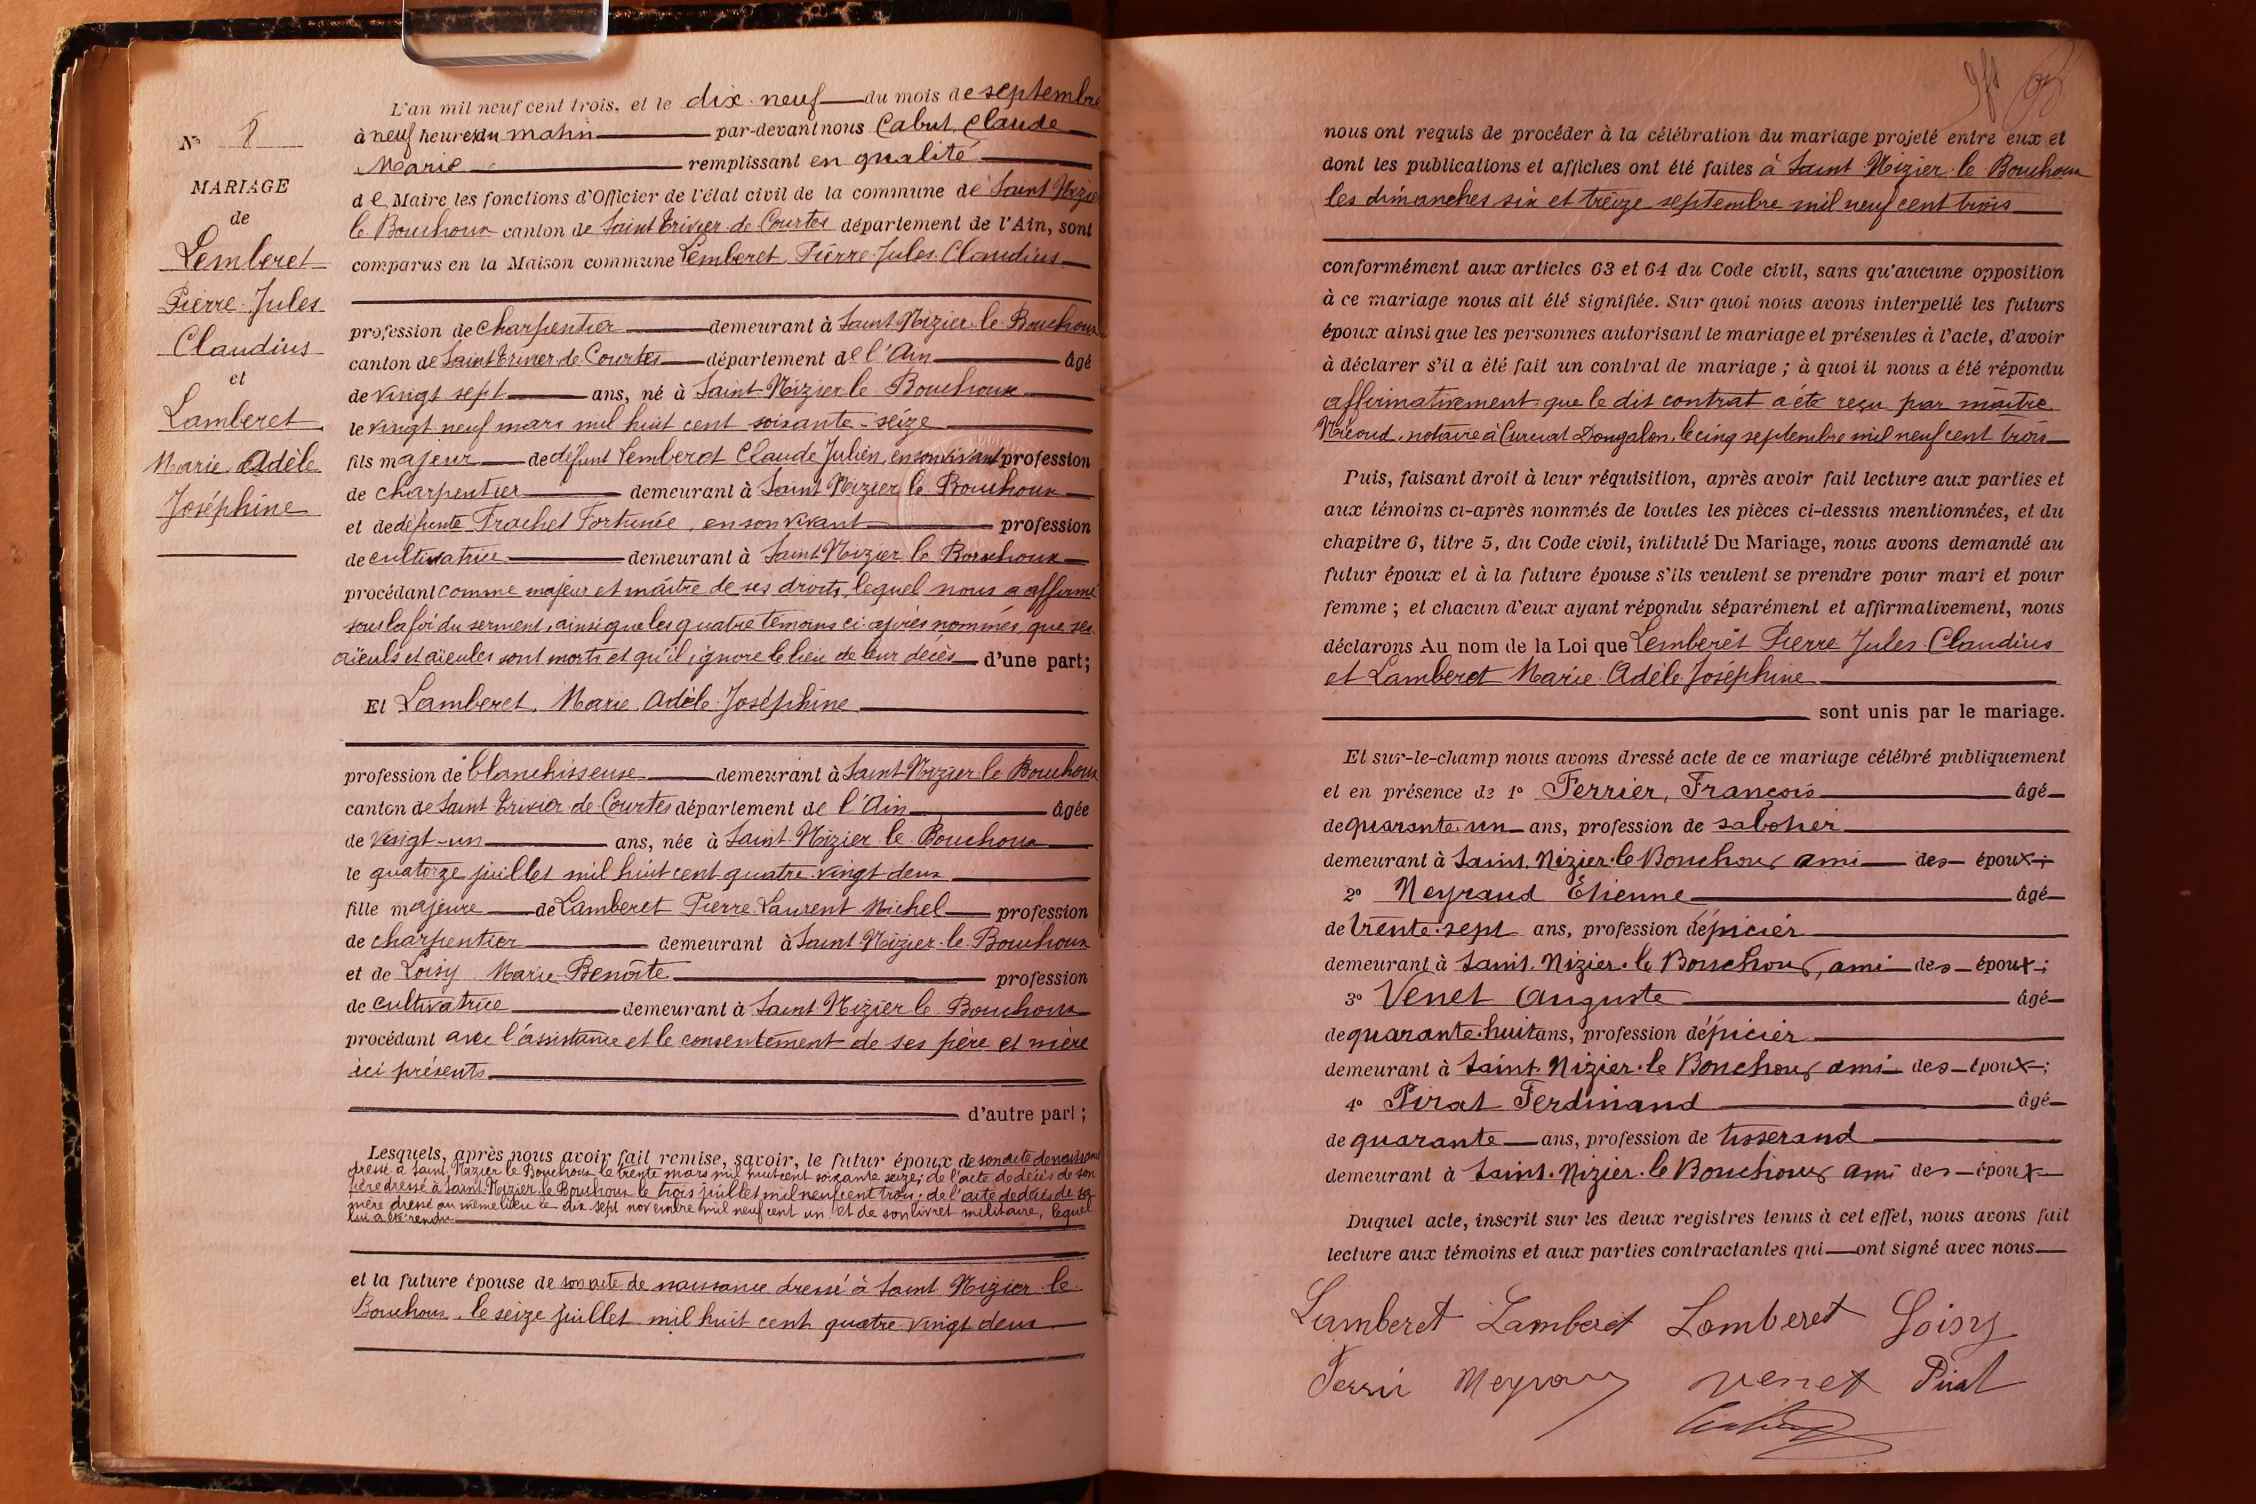 L'an mil neuf cent trois, et le dix-neuf du mois de septembre
à neuf heures du matin par-devant nous Cabut, Claude
Marie remplissant en qualité
de Maire les fonctions d'Officier de l'état civil de la commune de Saint Nizier
le Bouchoux canton de Saint Trivier de Courtes département de l'Ain, sont
comparus en la Maison commune Lemberet, Pierre Jules Claudius
profession de charpentier demeurant à Saint Nizier le Bouchoux
canton de Saint Trivier de Courtes département de l'Ain âgé
de vingt sept ans, né à Saint Nizier le Bouchoux
le vingt neuf mars mil huit cent soixante-seize
fils majeur de défunt Lemberet Claude Julien, en son vivant profession
de charpentier demeurant à Saint Nizier le Bouchoux
et de défunte Trachet Fortunée, en son vivant profession
de cultivatrice demeurant à Saint Nizier le Bouchoux
procédant comme majeur et maître de ses droits, lequel nous a affirmé
sous la foi du serment, ainsi que les quatre témoins ci-après nommés, que ses
aïeuls et aïeules sont morts et qu'il ignore le lieu de leur décès d'une part;
Et Lamberet, Marie Adèle Joséphine
profession de blanchisseuse demeurant à Saint Nizier le Bouchoux
canton de Saint Trivier de Courtes département de l'Ain âgée
de vingt-un ans, née à Saint Nizier le Bouchoux
le quatorze juillet mil huit cent quatre-vingt deux
fille majeure de Lamberet Pierre Laurent Michel profession
de charpentier demeurant à Saint Nizier le Bouchoux
et de Loisy Marie Benoîte profession
de cultivatrice demeurant à Saint Nizier le Bouchoux
procédant avec l'assistance et le consentement de ses père et mère
ici présents
d'autre part;
Lesquels, après nous avoir fait remise, savoir, le futur époux de son acte de naissance
dressé à Saint Nizier le Bouchoux le trente mars mil huit cent soixante seize; de l'acte de décès de son
père dressé à Saint Nizier le Bouchoux le trois juillet mil neuf cent trois; de l'acte de décès de sa
mère dressé au même lieu le dix sept novembre mil neuf cent un et de son livret militaire, lequel
lui a été rendu
et la future épouse de son acte de naissance dressé à Saint Nizier le
Bouchoux, le seize juillet mil huit cent quatre-vingt deux
Nº 8
MARIAGE
de
Lemberet
Pierre Jules
Claudius
et
Lamberet
Marie Adèle
Joséphine
nous ont requis de procéder à la célébration du mariage projeté entre eux et
dont les publications et affiches ont été faites à Saint Nizier le Bouchoux
les dimanches six et treize septembre mil neuf cent trois
conformément aux articles 63 et 64 du Code civil, sans qu'aucune opposition
à ce mariage nous ait été signifiée. Sur quoi nous avons interpellé les futurs
époux ainsi que les personnes autorisant le mariage et présentes à l'acte, d'avoir
à déclarer s'il a été fait un contrat de mariage; à quoi il nous a été répondu
affirmativement que le dit contrat a été reçu par maître
notaire à Curciat Dongalon, le cinq septembre mil neuf cent trois
Puis, faisant droit à leur réquisition, après avoir fait lecture aux parties et
aux témoins ci-après nommés de toutes les pièces ci-dessus mentionnées, et du
chapitre 6, titre 5, du Code civil, intitulé Du Mariage, nous avons demandé au
futur époux et à la future épouse s'ils veulent se prendre pour mari et pour
femme; et chacun d'eux ayant répondu séparément et affirmativement, nous
déclarons Au nom de la Loi que Lemberet Pierre Jules Claudius
et Lamberet Marie Adèle Joséphine
sont unis par le mariage.
Et sur-le-champ nous avons dressé acte de ce mariage célébré publiquement
et en présence de 1º Ferrier, François âgé
de quarante un ans, profession de sabotier
demeurant à Saint. Nizier. le Bouchoux ami des époux;
2º Neyraud Étienne âgé
de trente-sept ans, profession d'épicier
demeurant à Saint. Nizier. le Bouchoux, ami des époux;
3º Venet Auguste âgé
de quarante-huit ans, profession d'épicier
demeurant à Saint. Nizier. le Bouchoux ami des époux;
4º Pirat Ferdinand âgé
de quarante ans, profession de tisserand
demeurant à Saint. Nizier. le Bouchoux ami des époux
Duquel acte, inscrit sur les deux registres tenus à cet effet, nous avons fait
lecture aux témoins et aux parties contractantes qui ont signé avec nous
Lemberet Lamberet Lamberet Loisy
Ferrier Neyraud Venet Pirat